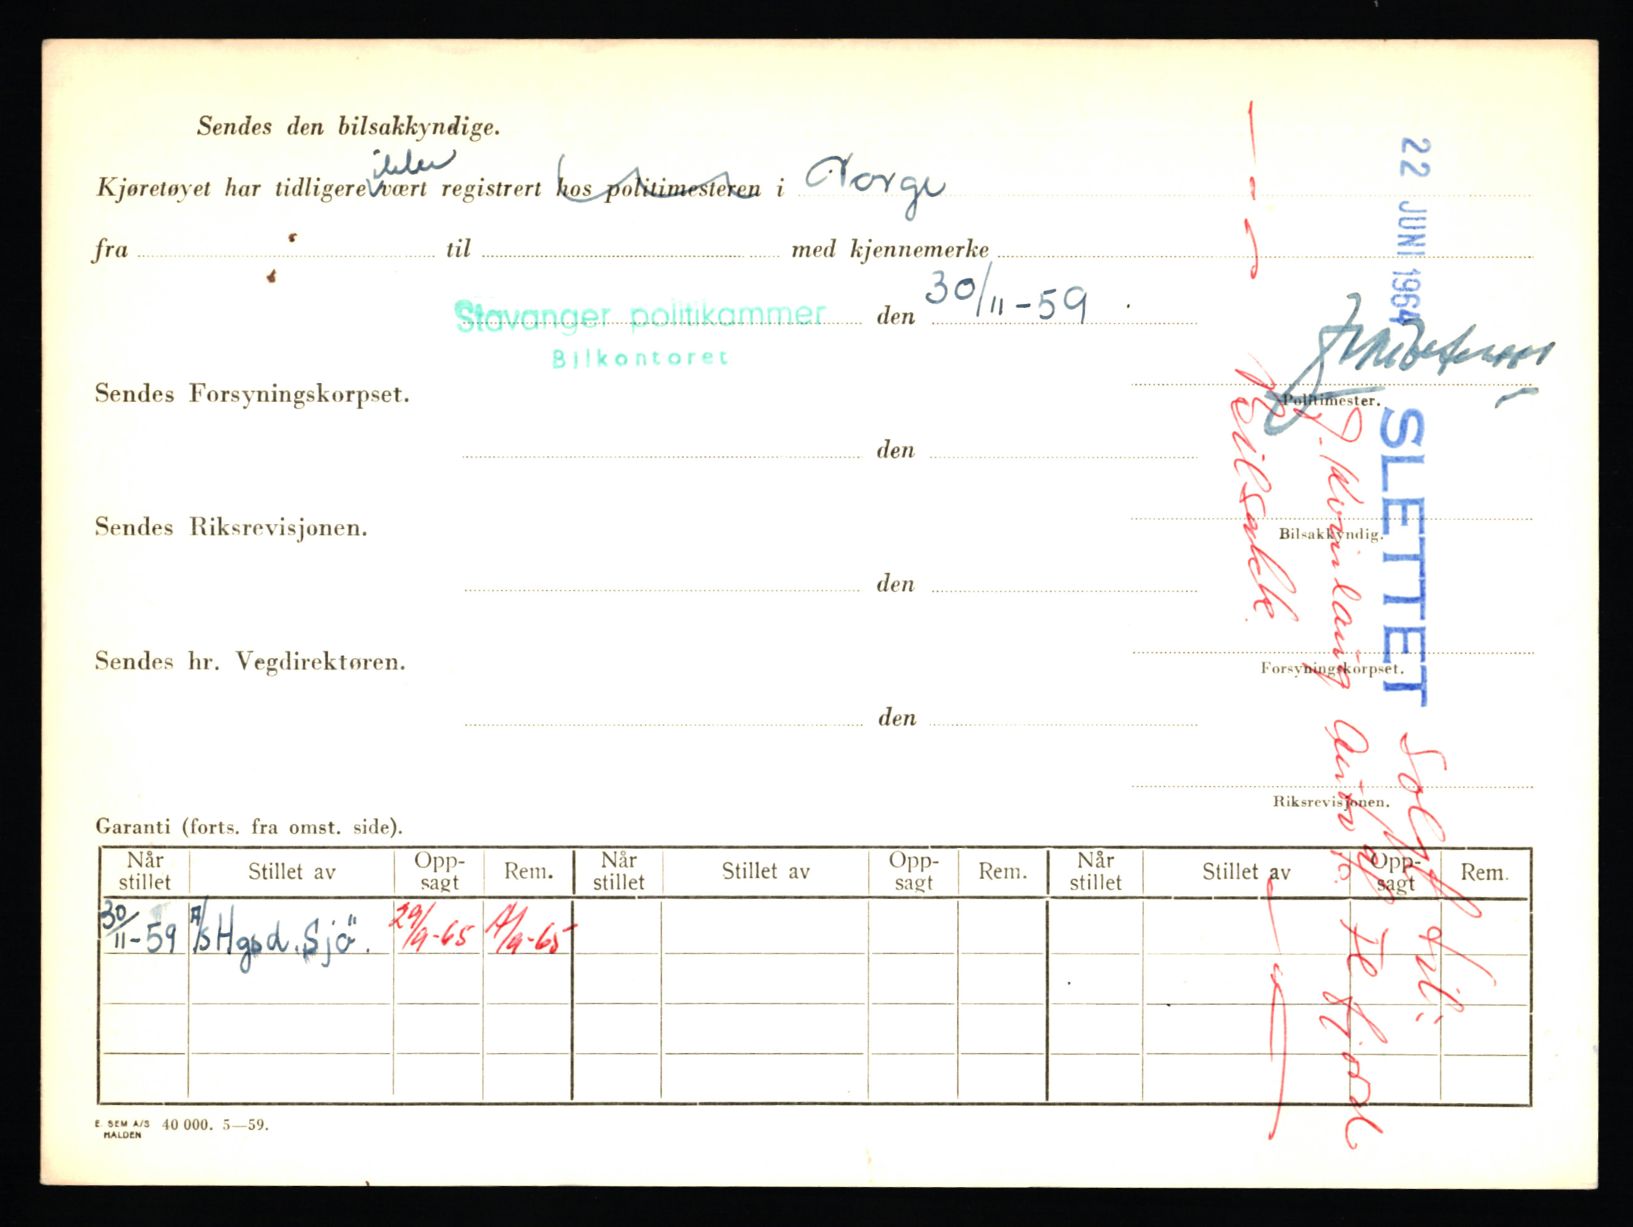 Sendes den bilsakkyndige.
ikke
Kjøretøyet har tidligere vært registrert hos politimesteren i Norge
fra til med kjennemerke
Stavanger politikammer den 30/11-59
Bilkontoret
Sendes Forsyningskorpset.
Politimester.
den
Sendes Riksrevisjonen.
Bilsakkyndig.
den
Sendes hr. Vegdirektøren.
Forsyningskorpset.
den
Riksrevisjonen.
Garanti (forts. fra omst. side).
Når stillet Stillet av Opp-sagt Rem. Når stillet Stillet av Opp-sagt Rem. Når stillet Stillet av Opp-sagt Rem.
30/11-59 A/S Hgsd. Sjö. 29/9-65 /9-65
E. SEM A/S HALDEN 40 000. 5—59.
22 JUNI 1964 SLETTET
Solgt til:
Bilsakk.